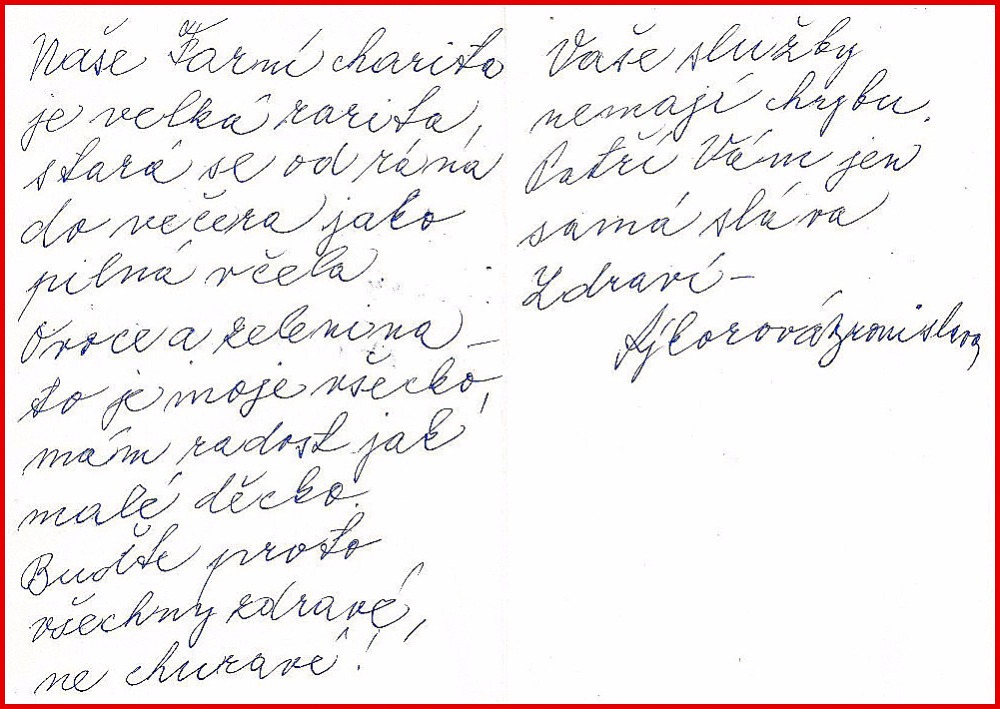 Naše Farní charita
je velká rarita,
stará se od rána
do večera jako
pilná včela.
Ovoce a zelenina –
to je moje všecko,
mám radost jak
malé děcko.
Buďte proto
všechny zdravé,
ne churavé!
Vaše služby
nemají chybu.
Patří Vám jen
samá sláva
Zdraví –